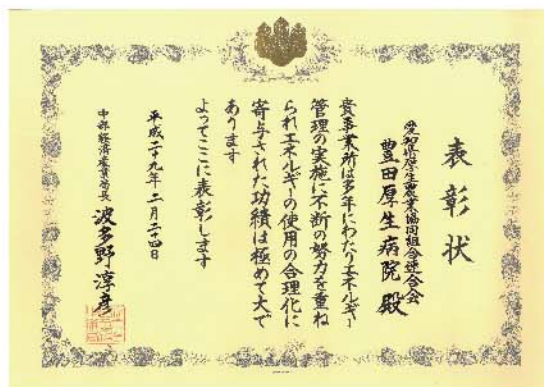 表彰状
愛知県厚生農業協同組合連合会
豊田厚生病院殿
貴事業所は多年にわたりエネルギー
管理の実施に不断の努力を重ね
られエネルギーの使用の合理化に
寄与された功績は極めて大で
あります
よってここに表彰します
平成二十九年二月二十四日
中部経済産業局長 波多野淳彦